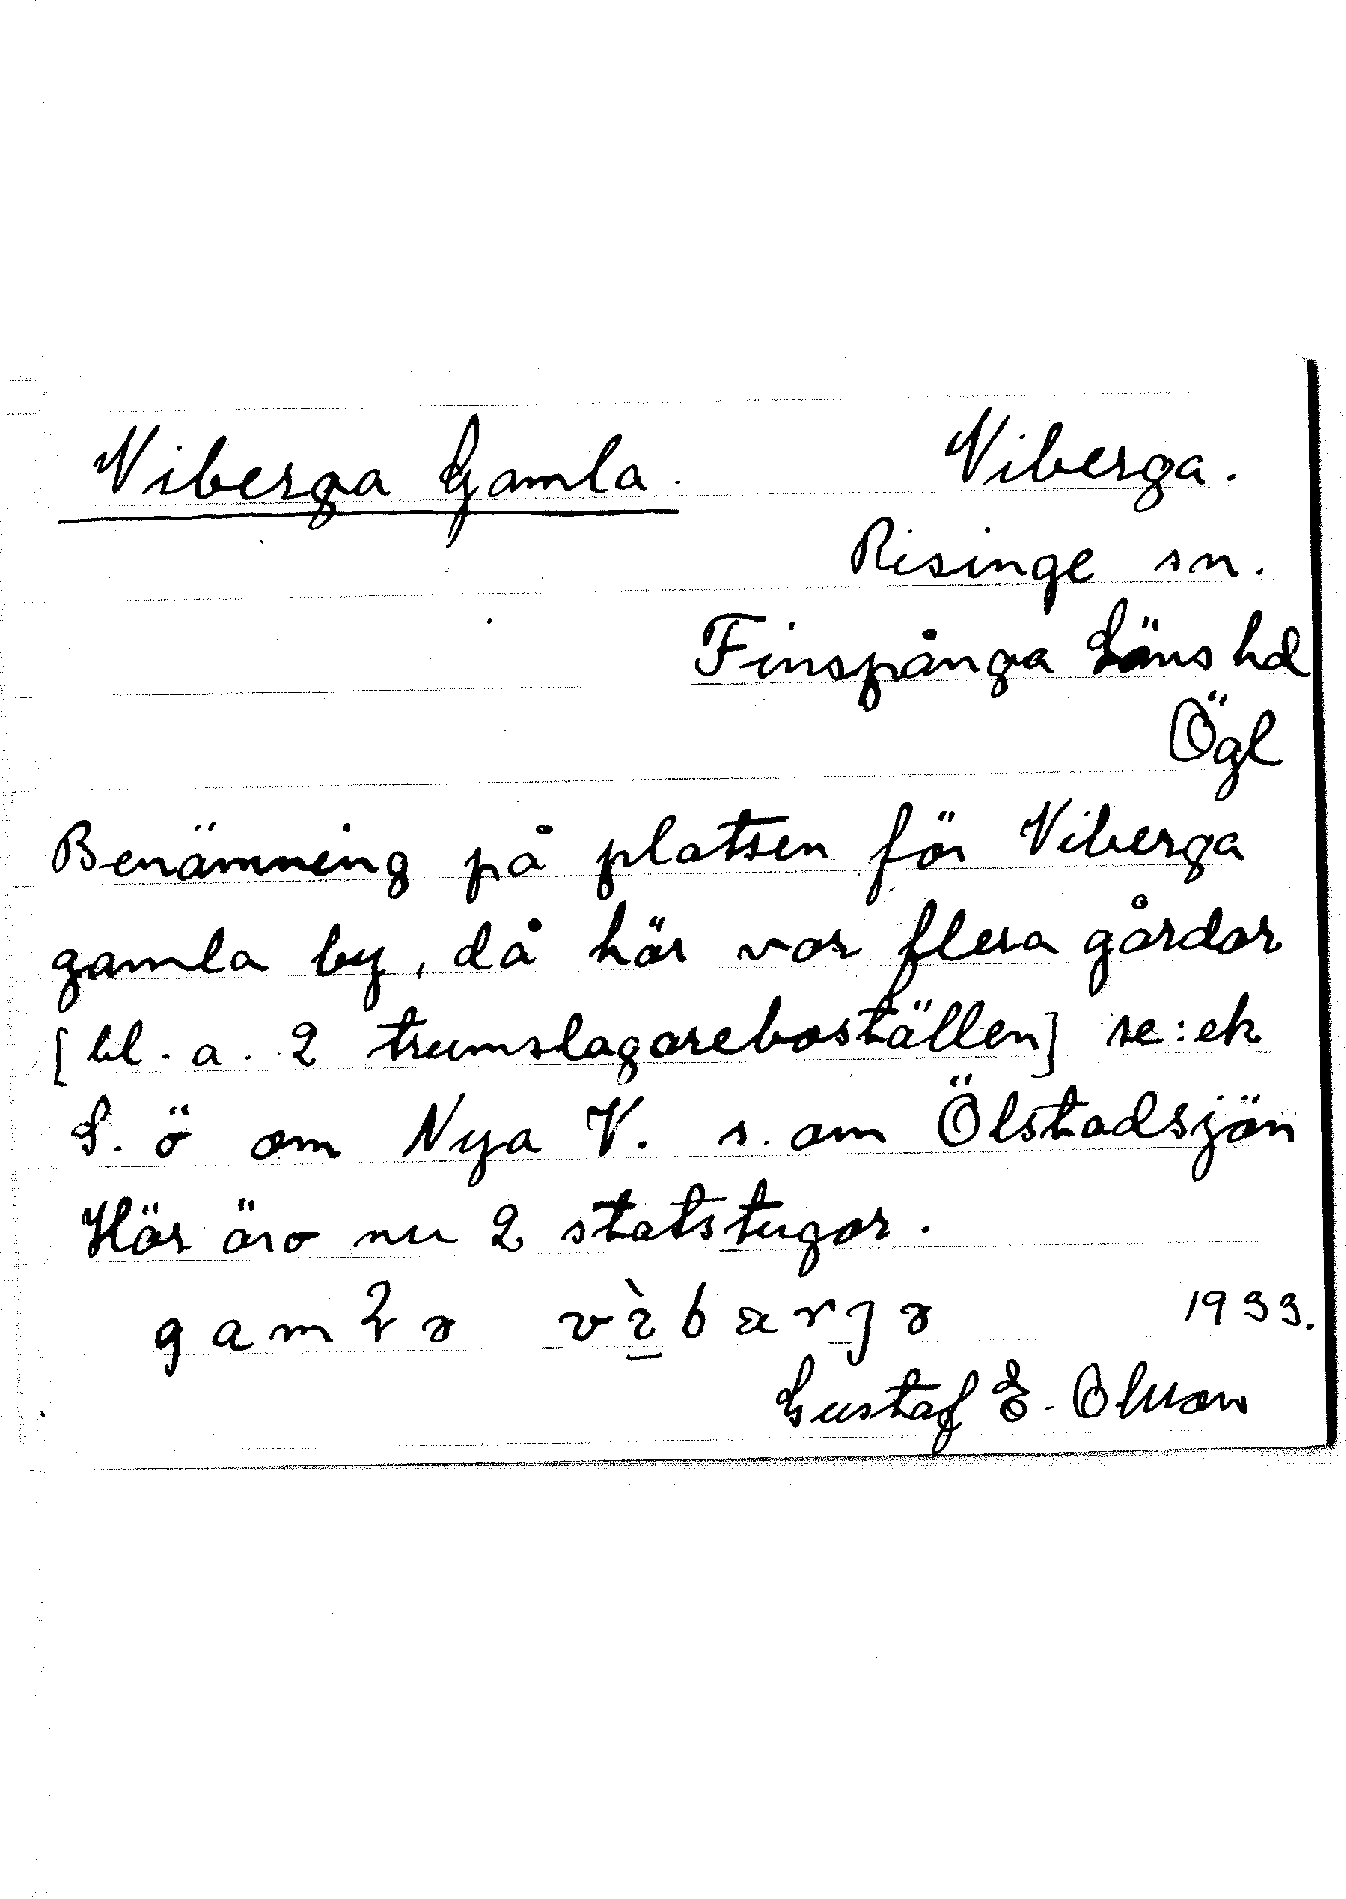 Viberga Gamla. Viberga.
Risinge sn.
Finspånga Läns hd
Ögl
Benämning på platsen för Viberga
gamla by, då här var flera gårdar
[bl. a. 2 trumslagareboställen] se: ek
S. ö om Nya V. s. om Ölstadsjön
Här äro nu 2 statstugor.
1933.
Gustaf E. Olsson